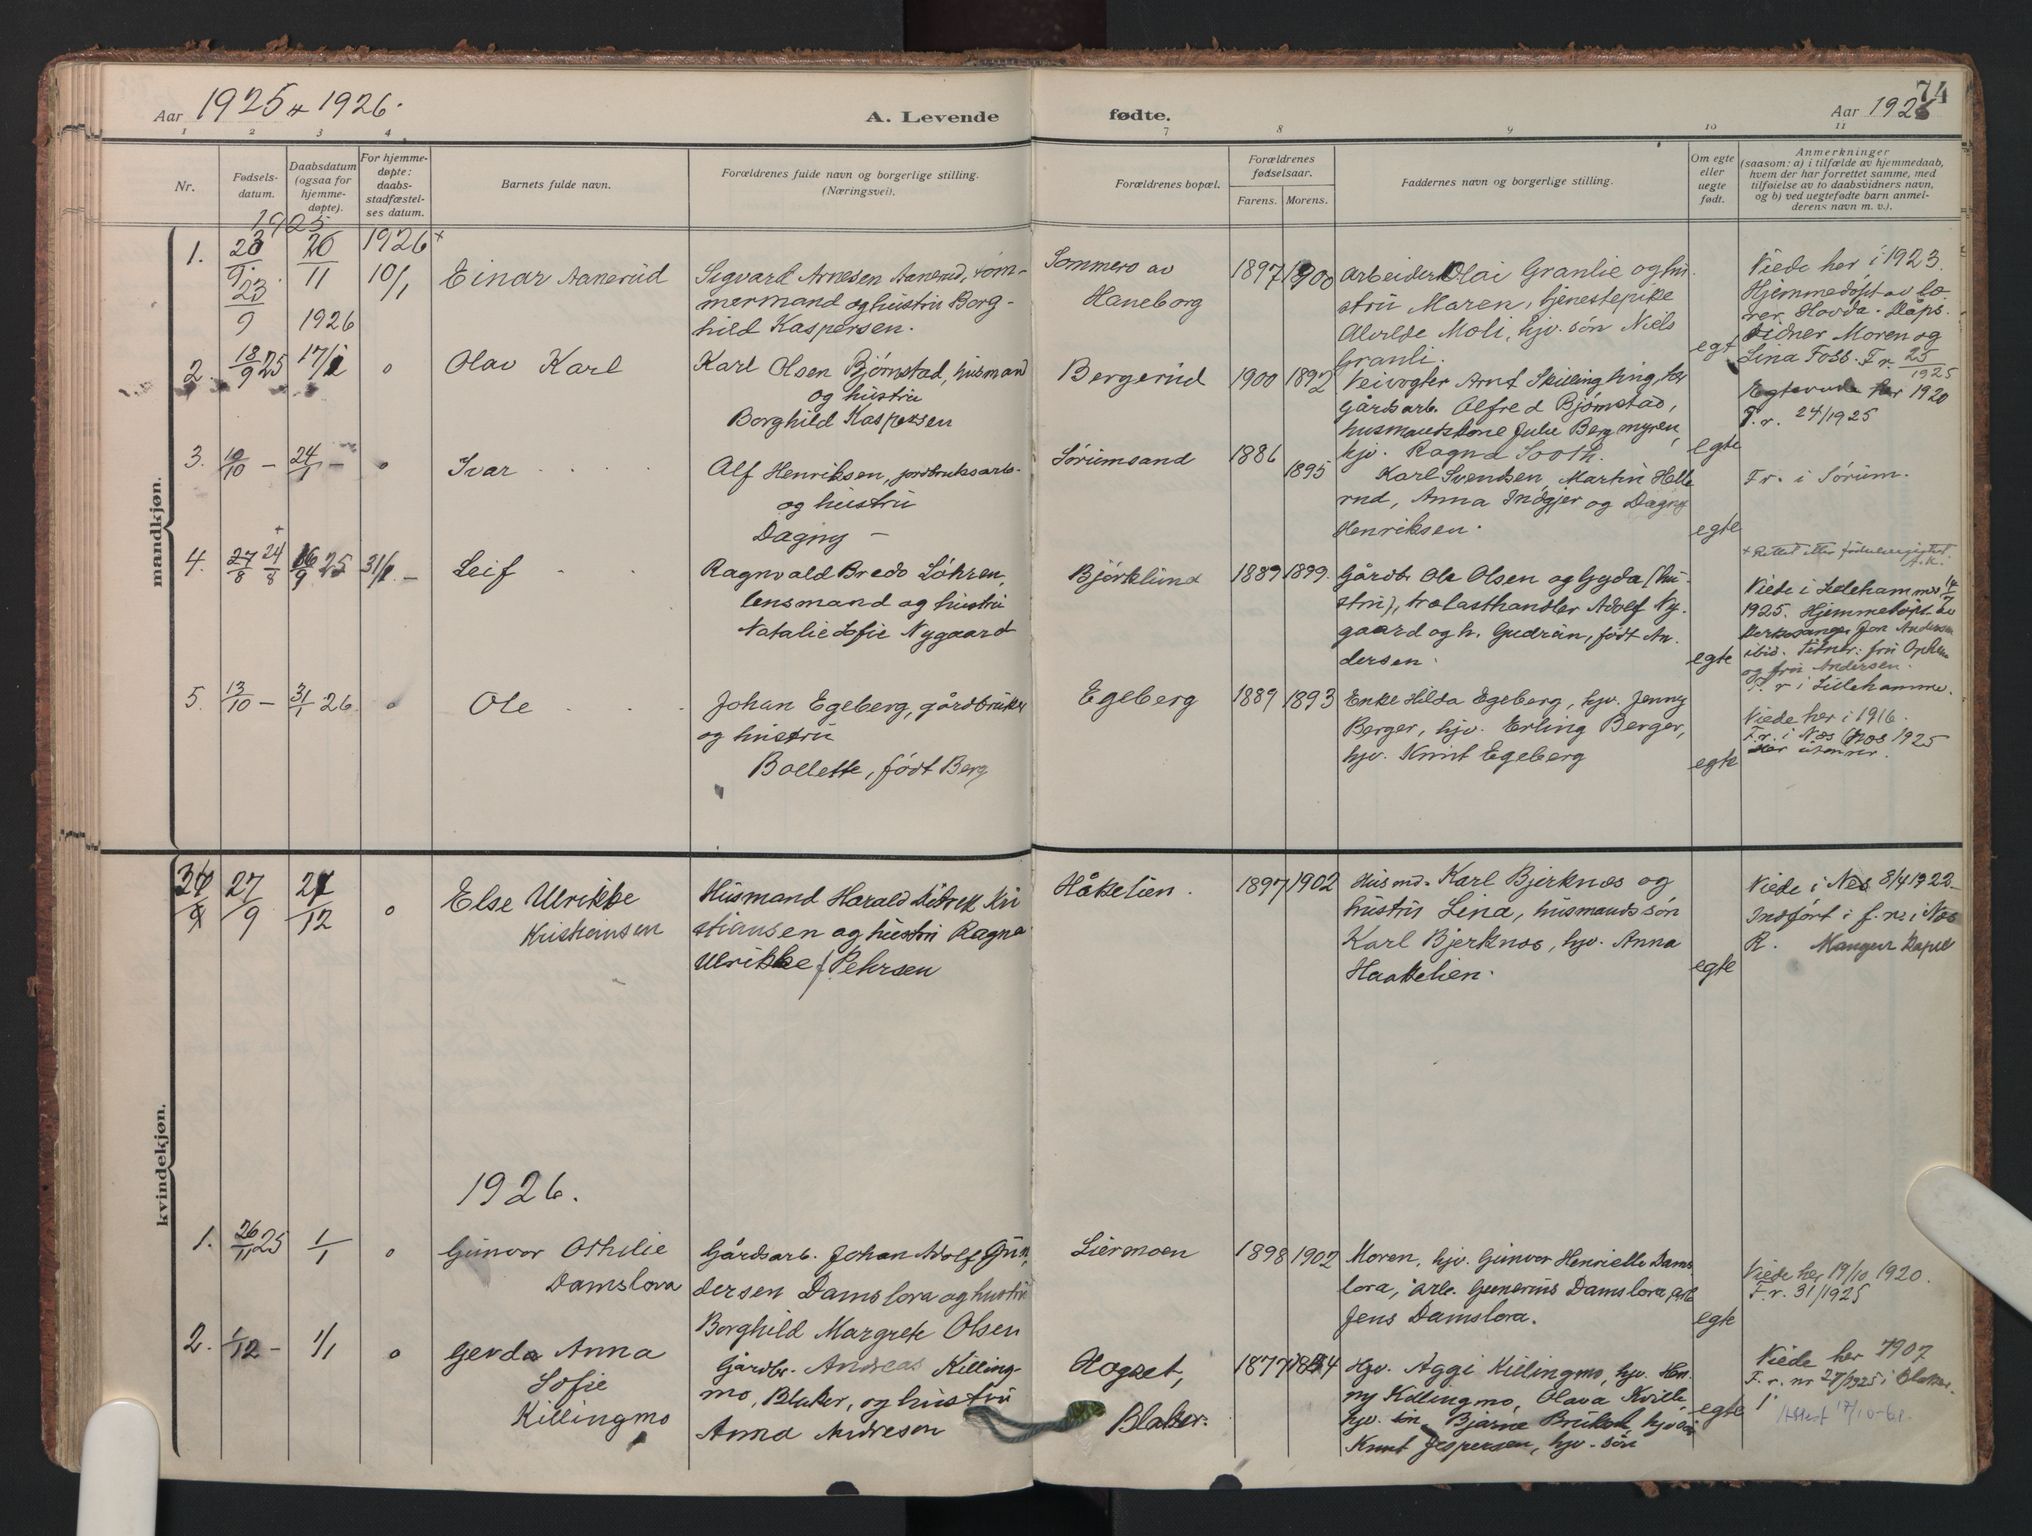 Aar 1925 & 1926.
A. Levende
fødte.
Aar 1926
74
1 2 3 4 7 8 9 10 11
Nr.
Fødsels-
datum.
Daabsdatum
(ogsaa for
hjemme-
døpte).
For hjemme-
døpte:
daabs-
stadfæstel-
ses datum.
Barnets fulde navn.
Forældrenes fulde navn og borgerlige stilling.
(Næringsvei).
Forældrenes bopæl.
Forældrenes
fødselsaar.
Farens. Morens.
Faddernes navn og borgerlige stilling.
Om egte
eller
uegte
født.
Anmerkninger
(saasom: a) i tilfælde av hjemmedaab,
hvem der har forrettet samme, med
tilføielse av to daabsvidners navn,
og b) ved uegtefødte barn anmel-
derens navn m. v.).
mandkjøn.
1925
1.
23/9
11
1926
10/1
Einar Aanerud
Sigvard Arnesen Aanerud, tøm-
mermand og hustru Borg-
hild Kaspersen.
Sommero av
Haneborg
1897 1900
Arbeider Olai Granlie og hu-
stru Maren, tjenestepike
Alvilde Moli, hjv. søn Niels
Granli.
egt
Viede her i 1923.
Hjemmedøpt av læ-
rer Hovda. Dåps-
vidner Moren og
Lina Foss. F. r. 25/1925
1926
2. 18/9 25 17/1 o
Olav Karl
Karl Olsen Bjørnstad, husmand
og hustru
Borghild Kaspersen
Bergerud
1900 1892
Veivogter Arnt Skillinghing,
Gårdsarb. Alfred Bjørnstad,
husmandskone Julie Bergmyren,
hjv. Ragna Sooth.
egte
Egteviede her 1920
F. r. 24/1925
3. 10/10 - 24/1 - o
Ivar
Alf Henriksen, jordbruksarb.
og hustru
Dagny -
Sørumsand
1886 1895
Karl Svendsen, Martin Helle
rud, Anna Indgjer og Dagny
Henriksen.
egte
F. r. i Sørum.
4. 27/8 24/8 16/9 25 31/1 -
Leif
Ragnvald Bredo Løhren,
lensmand og hustru
Natalie Sofie Nygaard
Bjørklund
1889 1899.
Gårdbr. Ole Olsen og Gyda (hu-
stru), trælasthandler Adolf Ny-
gaard og h. Gudrun, født An-
dersen.
egte
+ Rettet efter fødselsregistret.
A.K.
Viede i Lillehammer 14/7
1925. Hjemmedøpt av
Kirkesanger Jon Andersen
ibid. Vidner: fru
og fru Andersen.
F. r i Lillehammer.
5. 13/10 - 31/1 26. o
Ole
Johan Egeberg, gårdbruker
og hustru
Bollette, født Berg
Egeberg
1889 1893
Enke Hilda Egeberg, hjv. Jenny
Berger, hjv. Erling Berger,
hjv. Knut Egeberg
egte
Viede her i 1916.
F. r. i Nes Nos 1925
kvindekjøn.
27/9 27/12 o
Else Ulrikke
Kristiansen
Husmand Harald Didrik Kri
stiansen og hustru Ragna
Ulrikke f. Pehrsen
Håkelien.
1897 1902
Husmd. Karl Bjerknes og
hustru Lina, husmandssøn
Karl Bjerknes, hjv. Anna
Haakelien.
egte
Viede i Nes 8/4 1922
Indført i f. r. i Nes
R.
1926.
1. 26/11 25 1/1 o
Gunvor Othilie
Damslora
Gårdsarb. Johan Adolf Gun-
dersen Damslora og hustru
Borghild Margrete Olsen
Liermoen
1898 1902
Moren, hjv. Gunvor Henriette Dams
lora, arb. Gunerius Damslora, arb
Jens Damslora.
egte
Viede her 19/10 1920.
F. r. 31/1925
2. 1/12 - 1/1 o
Gerda Anna
Sofie
Killingmo
Gårdbr. Andreas Killing-
mo, Blaker, og hustru
Anna Andresen
Hogset,
Blaker.
1877 1884
Hjv. Aggi Killingmo, hjv. Hen-
ny Killingmo, Olava Kville
hjv. Bjarne
Knut Jespersen, hjv. søn
egte
Viede her 1907
F. r. nr 27/1925 i Blaker.
Attest 17/10-61